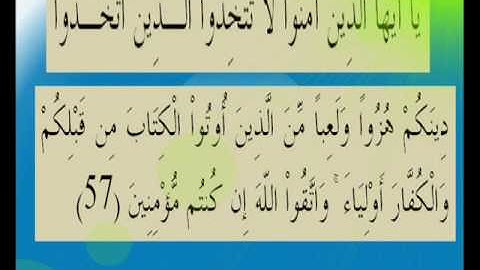 يَا أَيُّهَا الَّذِينَ آمَنُوا لَا تَتَّخِذُوا الَّذِينَ اتَّخَذُوا
دِينَكُمْ هُزُواً وَلَعِباً مِّنَ الَّذِينَ أُوتُواْ الْكِتَابَ مِن قَبْلِكُمْ
وَالْكُفَّارَ أَوْلِيَاءَ ۚ وَاتَّقُواْ اللَّهَ إِن كُنتُم مُّؤْمِنِينَ (57)